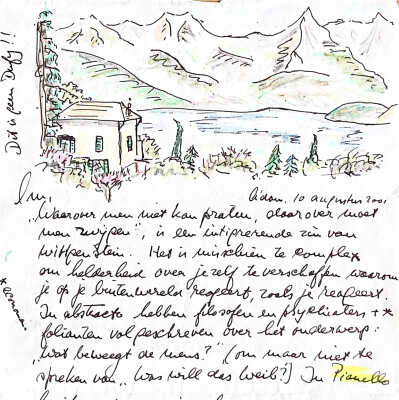 Dit is geen Dufy!!
10 augustus 2001
"Waarover men niet kan praten, daarover moet
men zwijgen", is een intrigerende zin van
Wittgenstein. Het is misschien te complex
om helderheid over jezelf te verschaffen waarom
je op je buitenwereld reageert, zoals je reageert.
In abstracto hebben filosofen en psychiaters +*
folianten volgeschreven over het onderwerp:
"wat beweegt de mens?" (om maar niet te
spreken van "Was will das Weib?) In Pianello